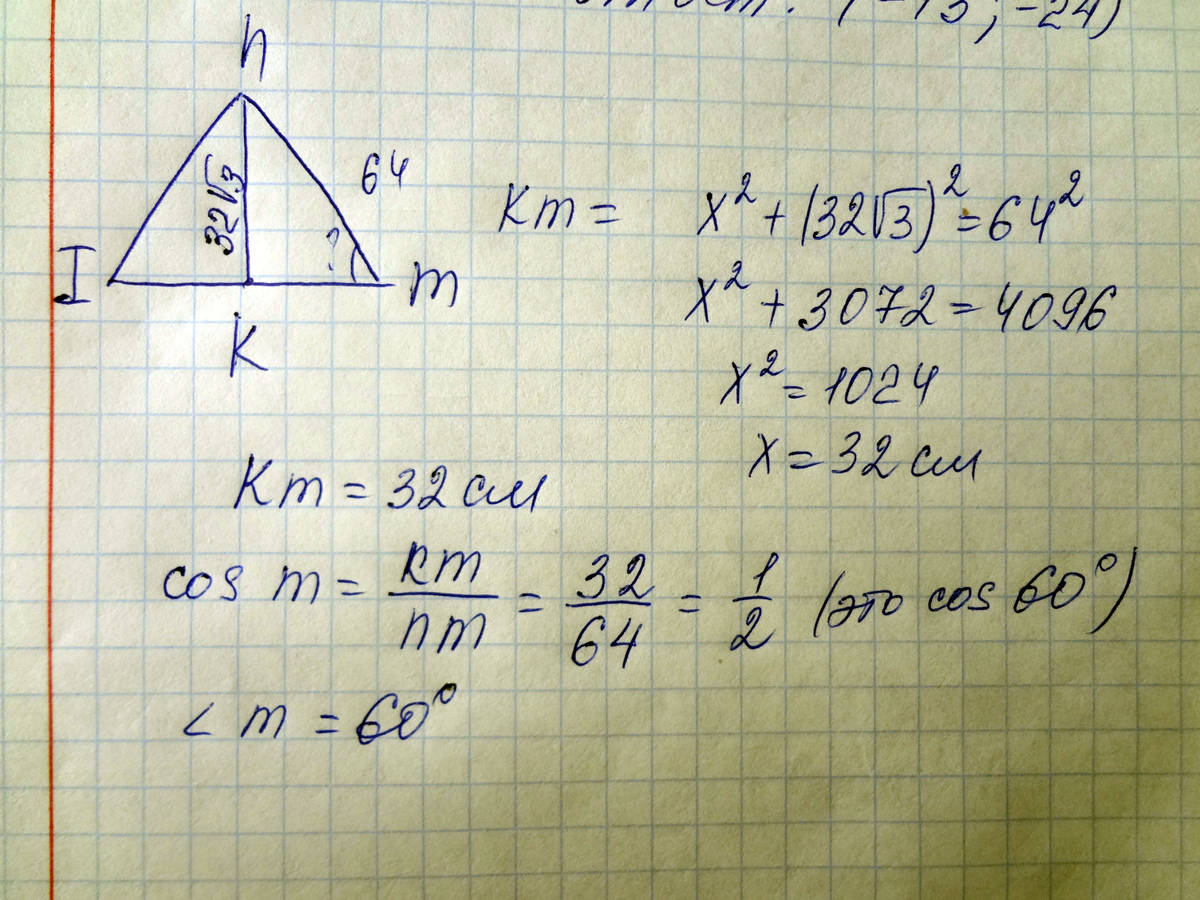 ; -24)
n
32√3
64
?
I
m
K
Km = x² + (32√3)² = 64²
x² + 3072 = 4096
x² = 1024
x = 32 см
Km = 32 см
cos m = km/nm = 32/64 = 1/2 (это cos 60°)
< m = 60°